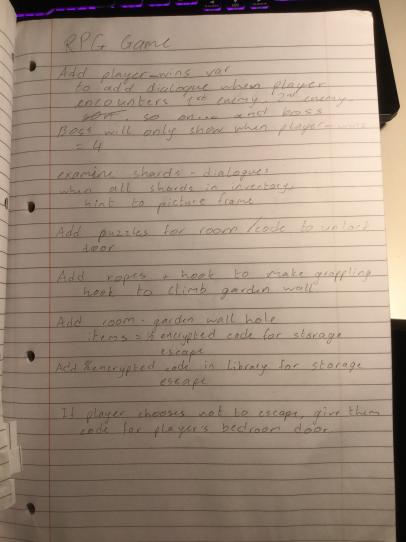 RPG Game
Add player_wins var
to add dialogue when player
encounters 1st enemy, 2nd enemy,
so on... and boss
Boss will only show when player_wins
= 4
examine shards - dialogues
when all shards in inventory,
hint to picture frame
Add puzzles for room / code to unlock
door
Add ropes + hook to make grappling
hook to climb garden wall
Add room - garden wall hole
items = ½ encrypted code for storage
escape
Add encrypted code in library for storage
escape
If player chooses not to escape, give them
code for player's bedroom door